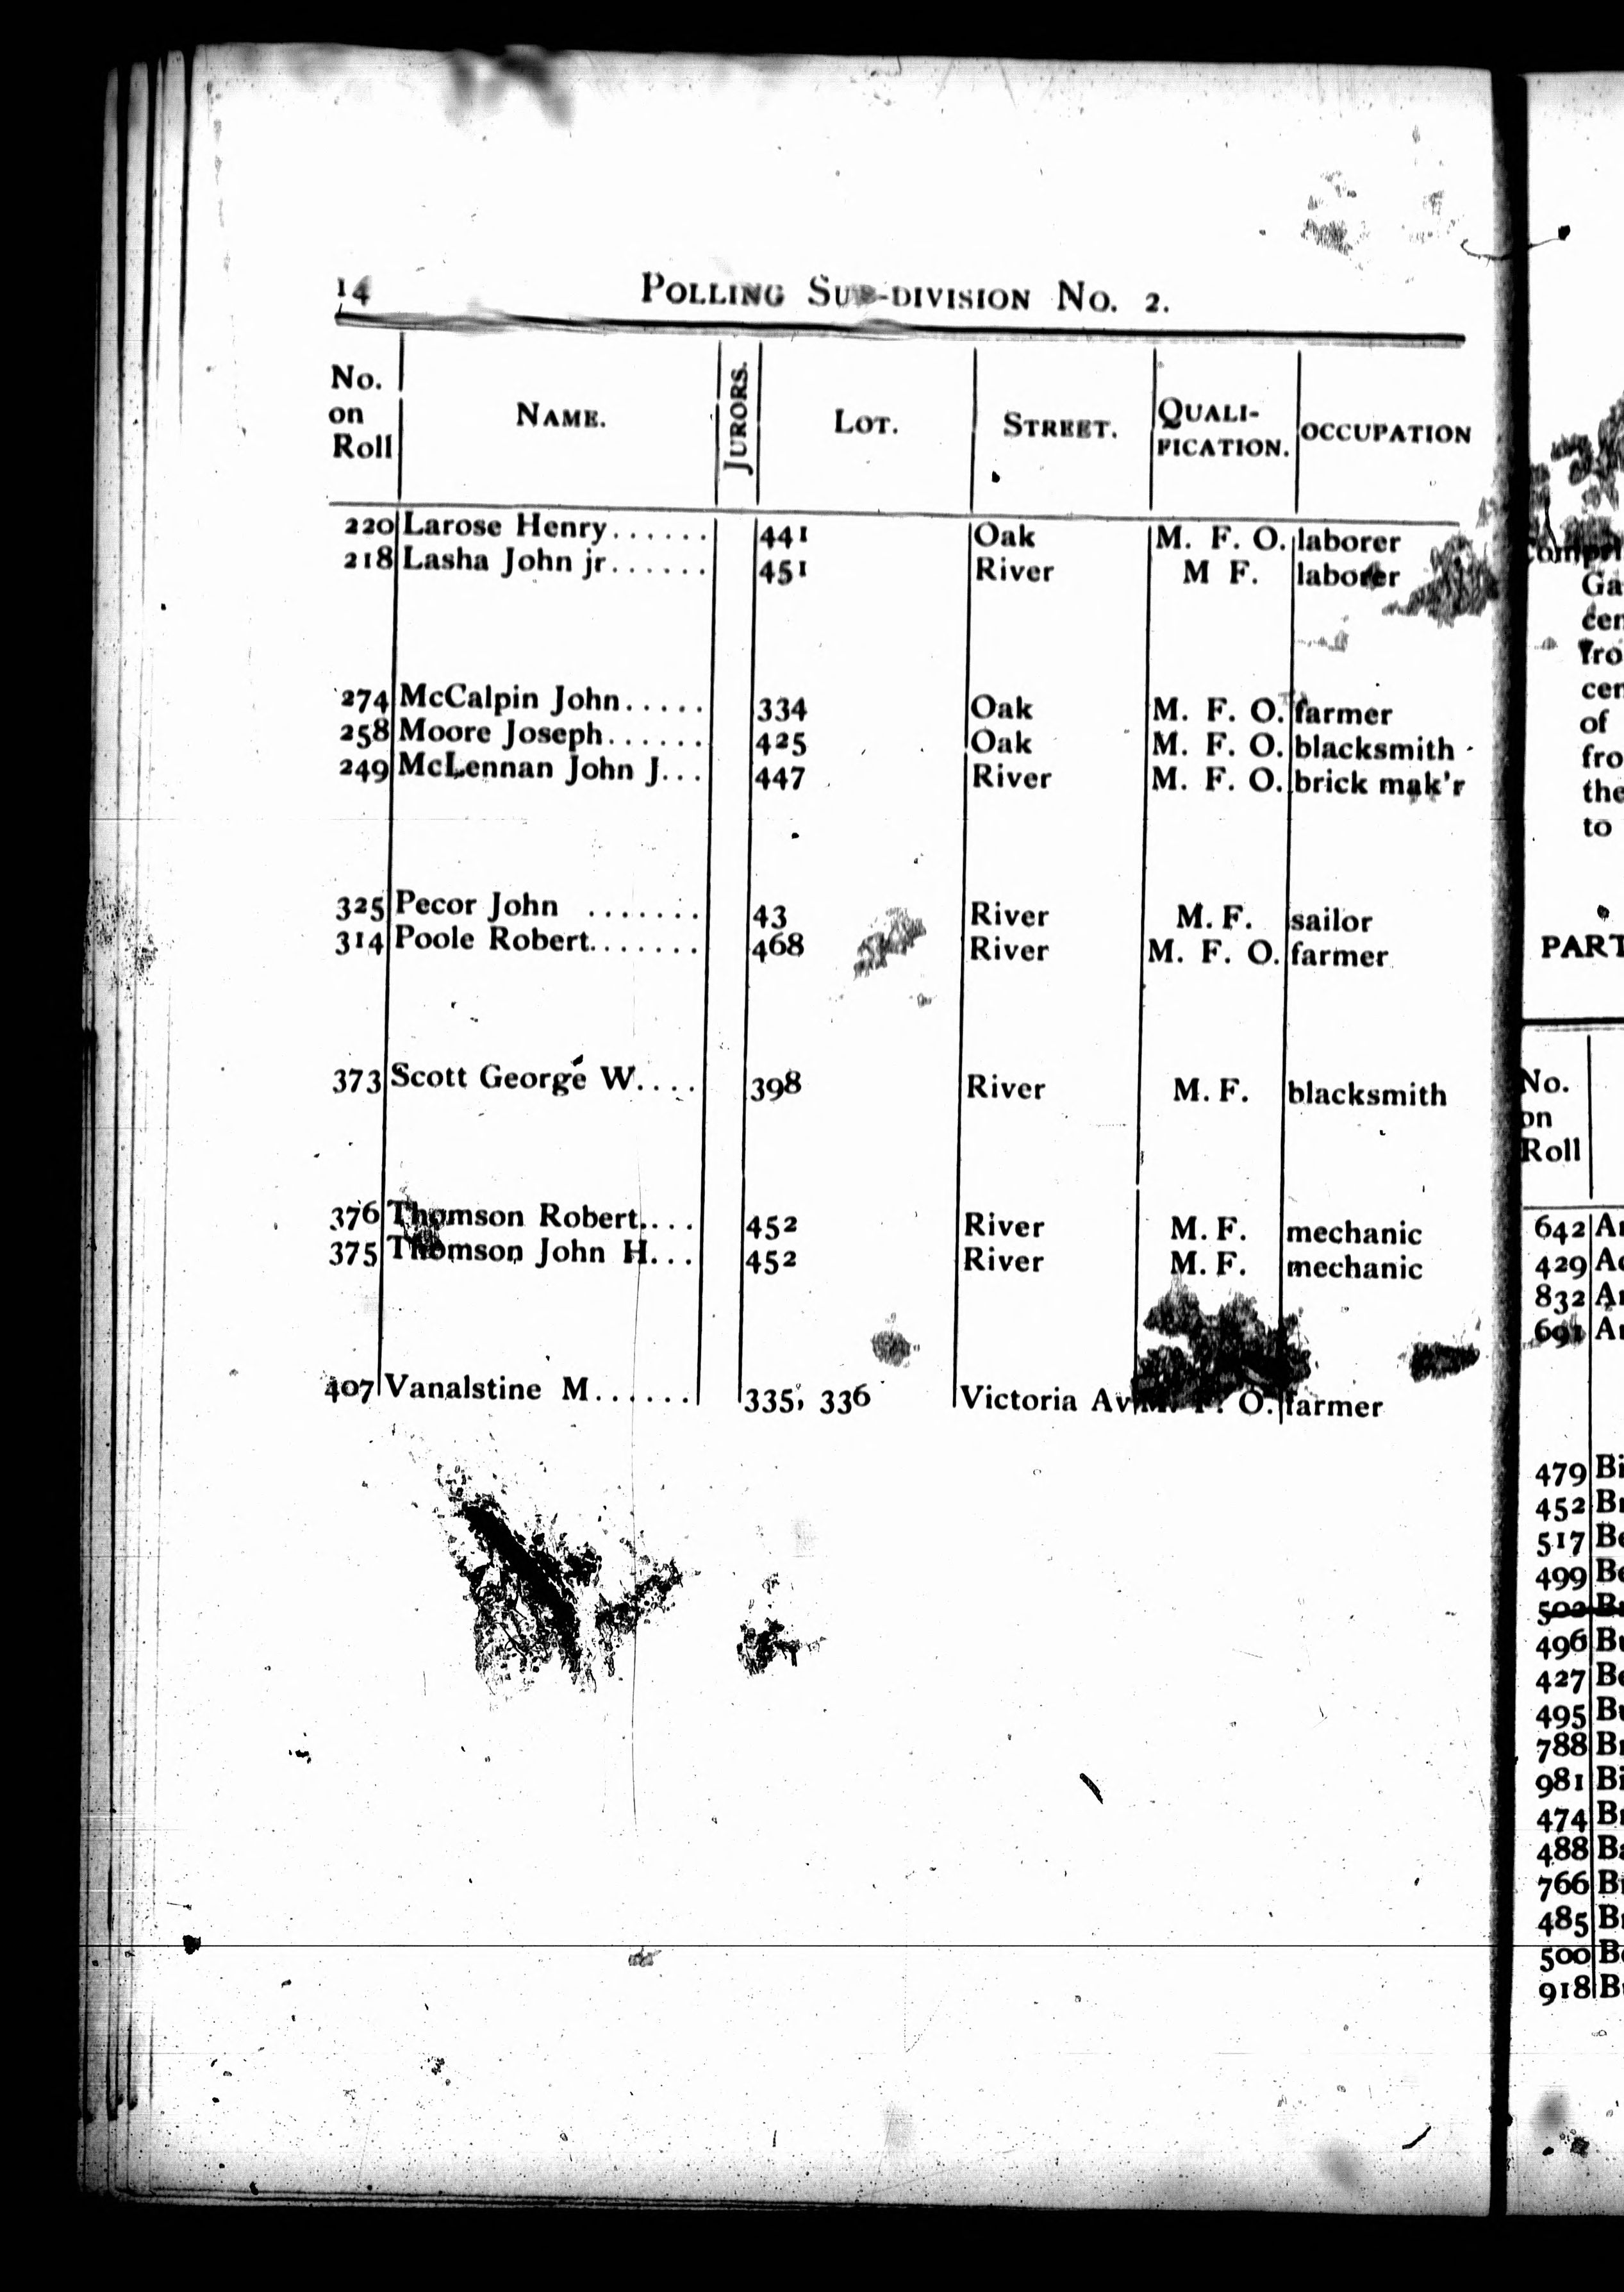 14 POLLING SUB-DIVISION No. 2.
No. on Roll NAME. JURORS. LOT. STREET. QUALI-FICATION. OCCUPATION
220 Larose Henry...... 441 Oak M. F. O. laborer
218 Lasha John jr...... 451 River M F. laborer
274 McCalpin John..... 334 Oak M. F. O. farmer
258 Moore Joseph...... 425 Oak M. F. O. blacksmith
249 McLennan John J... 447 River M. F. O. brick mak'r
325 Pecor John ....... 43 River M. F. sailor
314 Poole Robert....... 468 River M. F. O. farmer
373 Scott George W.... 398 River M. F. blacksmith
376 Thomson Robert.... 452 River M. F. mechanic
375 Thomson John H... 452 River M. F. mechanic
407 Vanalstine M...... 335, 336 Victoria Av M. F. O. farmer
Ga
cen
fro
cen
of
fro
the
to
PART
No.
on
Roll
642
429
832
691
479 Bi
452
517
499
502
496
427
495
788
981 Bi
474
488
766
485
500
918